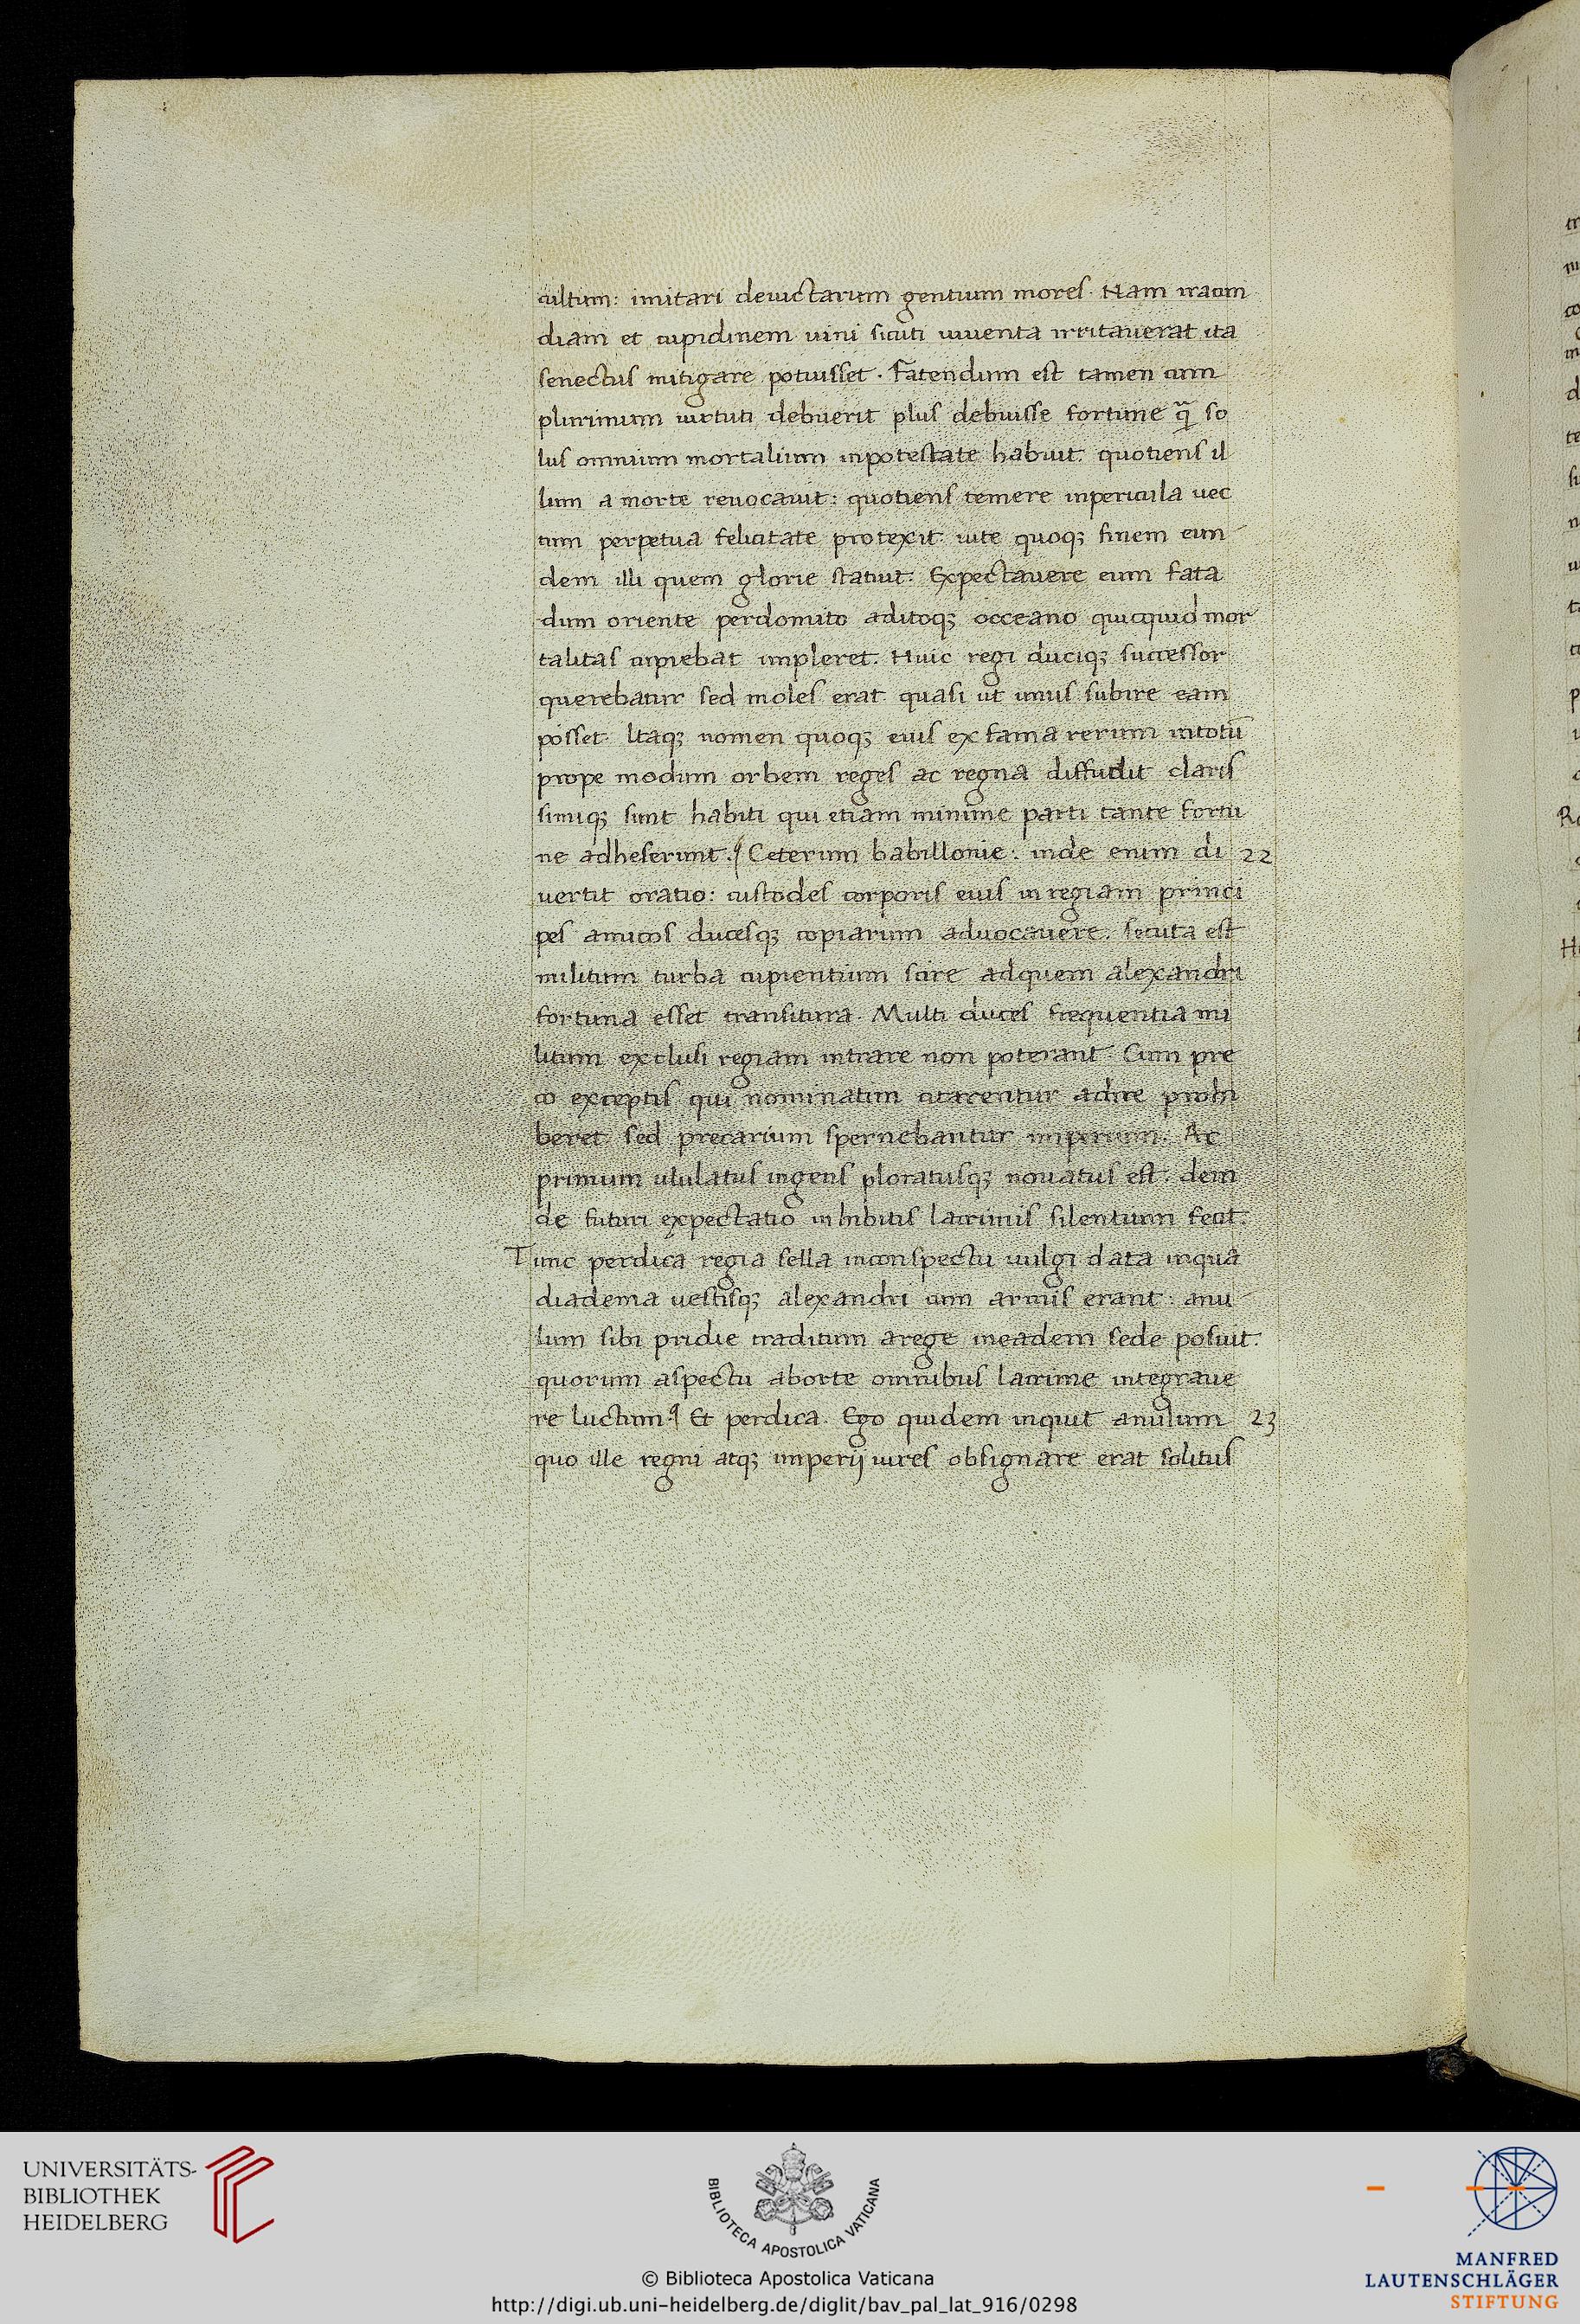 cultum: imitari deuictarum gentium mores. Nam iracun
diam et cupidinem uini sicuti iuuenta irritauerat ita
senectus mitigare potuisset. Fatendum est tamen cum
plurimum uirtuti debuerit plus debuisse fortune q̃ so
lus omnium mortalium inpotestate habuit. quotiens il
lum a morte reuocauit: quotiens temere inpericula uec
tum perpetua felicitate protexit. uite quoq; finem eun
dem illi quem glorie statuit. Expectauere eum fata
dum oriente perdomito aditoq; occeano quicquid mor
talitas cupiebat impleret. Huic regi duciq; successor
querebatur sed moles erat quasi ut unus subire eam
posset. Itaq; nomen quoq; eius ex fama rerum intotū
prope modum orbem reges ac regna diffudit claris
simiq; sunt habiti qui etiam minime parti tante fortu
ne adheserunt. Ceterum babillonie: inde enim di 22
uertit oratio: custodes corporis eius in regiam princi
pes amicos ducesq; copiarum aduocauere. secuta est
militum turba cupientium scire adquem alexandri
fortuna esset transitura. Multi duces frequentia mi
litum exclusi regiam intrare non poterant. Cum pre
co exceptis qui nominatim citarentur adire prohi
beret sed precarium spernebantur imperium. Ac
primum ululatus ingens ploratusq; nouatus est. dein
de futuri expectatio inhibitis lacrimis silentium fecit.
Tunc perdica regia sella inconspectu uulgi data inqua
diadema uestisq; alexandri cum armis erant: anu
lum sibi pridie traditum arege ineadem sede posuit.
quorum aspectu aborte omnibus lacrime integraue
re luctum. Et perdica. Ego quidem inquit anulum 23
quo ille regni atq; imperij uires obsignare erat solitus
UNIVERSITÄTS-
BIBLIOTHEK
HEIDELBERG
BIBLIOTECA APOSTOLICA VATICANA
© Biblioteca Apostolica Vaticana
http://digi.ub.uni-heidelberg.de/diglit/bav_pal_lat_916/0298
MANFRED
LAUTENSCHLÄGER
STIFTUNG